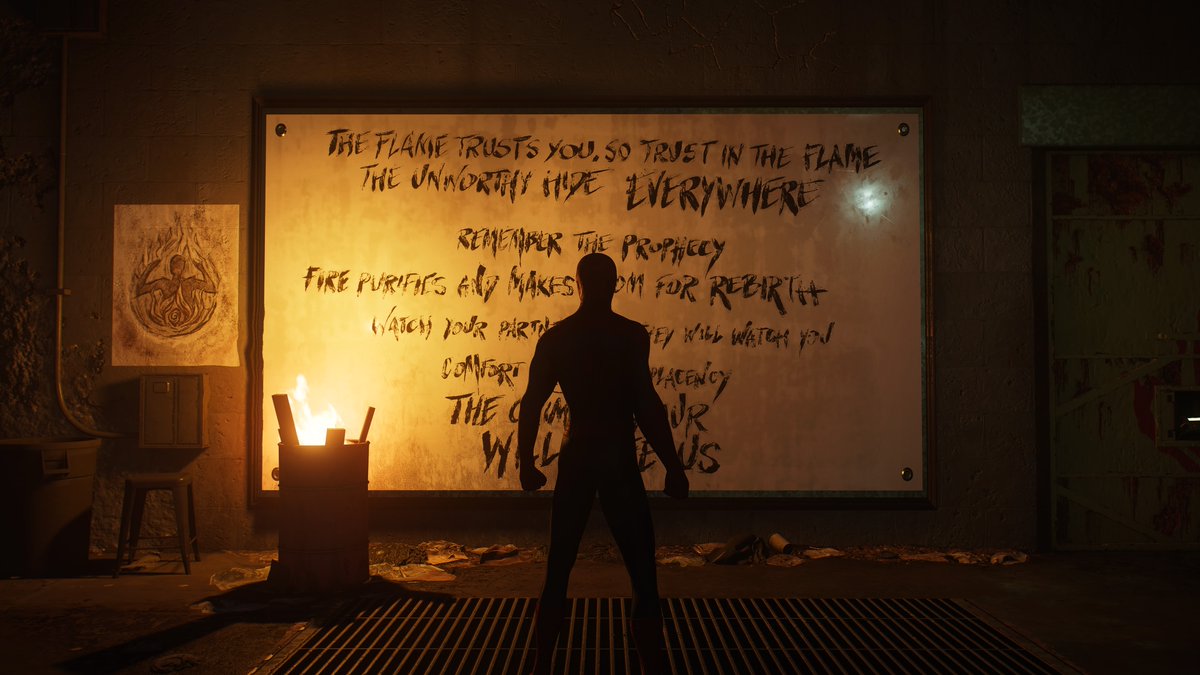 THE FLAME TRUSTS YOU. SO TRUST IN THE FLAME
THE UNWORTHY HIDE EVERYWHERE
REMEMBER THE PROPHECY
FIRE PURIFIES AND MAKES FOR REBIRTH
WATCH YOUR WILL WATCH YOU
COMFORT
THE
US